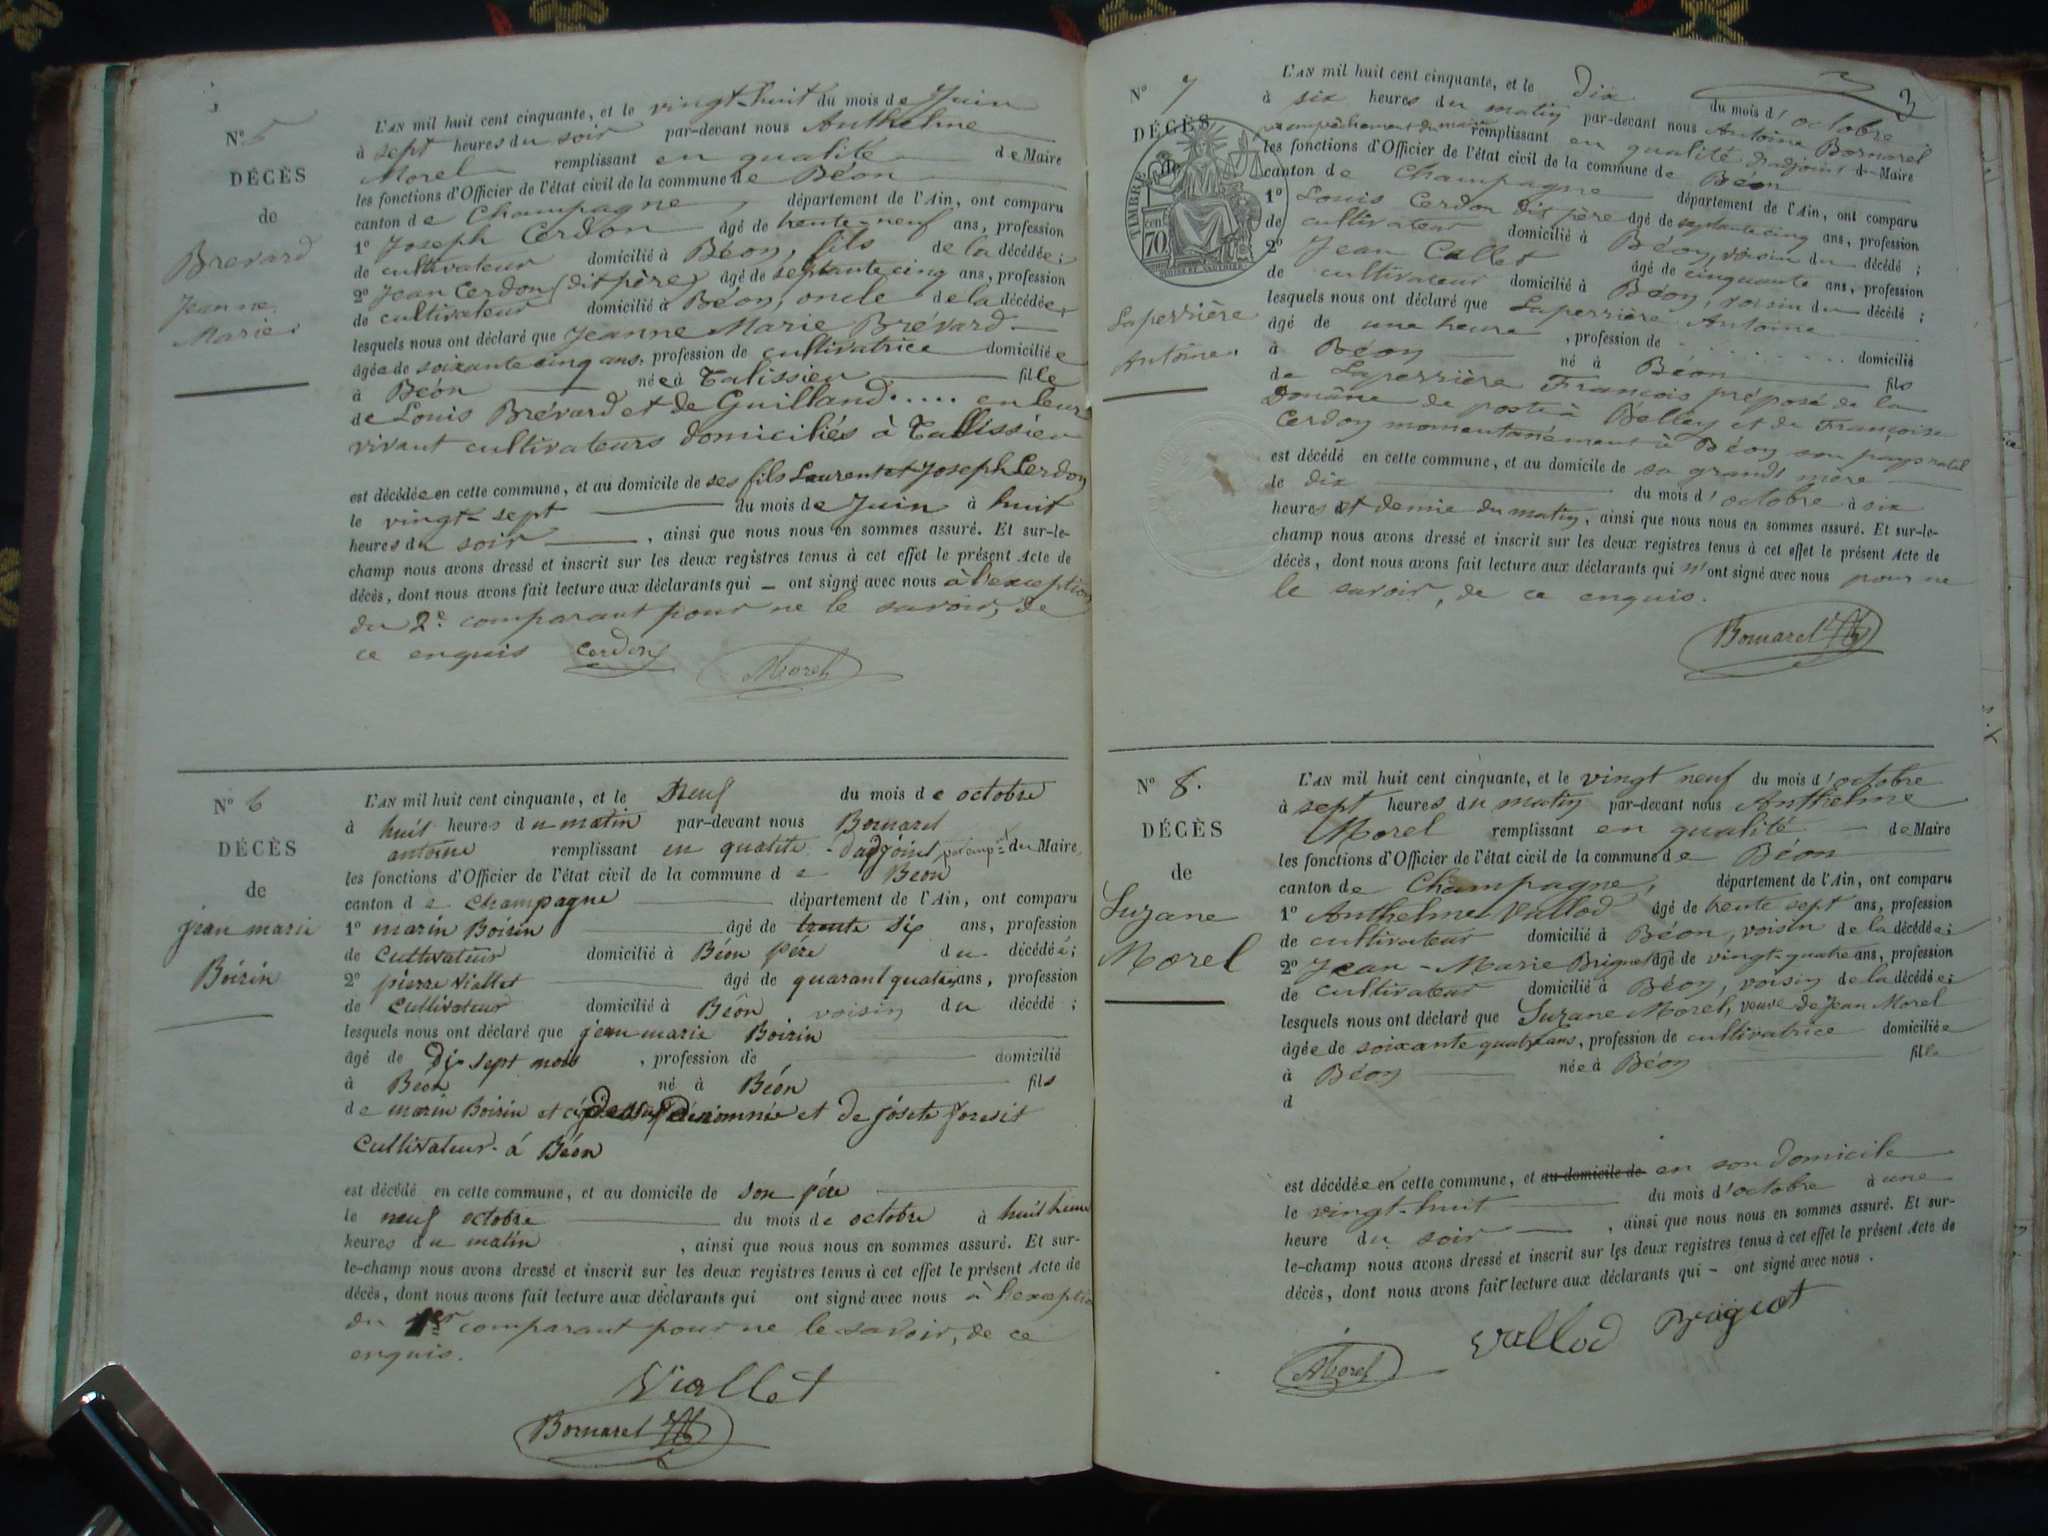 N° 5
DÉCÈS
de
Brevard
Jeanne
Marie
L'AN mil huit cent cinquante, et le vingt-huit du mois de Juin
à sept heures du soir par-devant nous Anthelme
Morel remplissant en qualité de Maire
les fonctions d'Officier de l'état civil de la commune de Béon
canton de Champagne, département de l'Ain, ont comparu
1° Joseph Cerdon âgé de trente-neuf ans, profession
de cultivateur domicilié à Béon, fils de la décédée;
2° Jean Cerdon (dit père) âgé de septante cinq ans, profession
de cultivateur domicilié à Béon, oncle de la décédée,
lesquels nous ont déclaré que Jeanne Marie Brévard
âgée de soixante cinq ans, profession de cultivatrice domiciliée
à Béon née à Talissieu fille
de Louis Brévard et de Guilland ..... en leur
vivant cultivateurs domiciliés à Tallissieu
est décédée en cette commune, et au domicile de ses fils Laurent et Joseph Cerdon
le vingt-sept du mois de Juin à huit
heures du soir, ainsi que nous nous en sommes assuré. Et sur-le-
champ nous avons dressé et inscrit sur les deux registres tenus à cet effet le présent Acte de
décès, dont nous avons fait lecture aux déclarants qui — ont signé avec nous à l'exception
du 2e comparant pour ne le savoir, de
ce enquis Cerdon Morel
N° 6
DÉCÈS
de
jean marie
Boirin
L'AN mil huit cent cinquante, et le Neuf du mois de octobre
à huit heures du matin par-devant nous Bornarel
antoine remplissant en qualité d'adjoint, par emp.t du Maire
les fonctions d'Officier de l'état civil de la commune de Beon
canton de Champagne département de l'Ain, ont comparu
1° marin Boirin âgé de trente six ans, profession
de Cultivateur domicilié à Béon père du décédé;
2° pierre Viallet âgé de quarant quatre ans, profession
de Cultivateur domicilié à Béon voisin du décédé;
lesquels nous ont déclaré que jean marie Boirin
âgé de dix sept mois, profession de domicilié
à Béon né à Béon fils
de marin Boirin et ci dessus dénommée et de josete
Cultivateur à Béon
est décédé en cette commune, et au domicile de son père
le neuf octobre du mois de octobre à huit heure
heures du matin, ainsi que nous nous en sommes assuré. Et sur-
le-champ nous avons dressé et inscrit sur les deux registres tenus à cet effet le présent Acte de
décès, dont nous avons fait lecture aux déclarants qui ont signé avec nous à l'exception
du 1er comparant pour ne le savoir, de ce
enquis.
Viallet
Bornarel
3
N° 7
DÉCÈS
de
TIMBRE
70 cent
Laperrière
Antoine
L'AN mil huit cent cinquante, et le Dix du mois d'octobre
à six heures du matin par-devant nous Antoine Bornarel
empêchement du maire remplissant en qualité d'adjoint du Maire
les fonctions d'Officier de l'état civil de la commune de Béon
canton de Champagne département de l'Ain, ont comparu
1° Louis Cerdon dit père âgé de septante cinq ans, profession
de cultivateur domicilié à Béon, voisin du décédé;
2° Jean Callet âgé de cinquante ans, profession
de cultivateur domicilié à Béon, voisin du décédé;
lesquels nous ont déclaré que Laperrière Antoine
âgé de une heure, profession de domicilié
à Béon né à Béon fils
de Laperrière François préposé de la
Douâne de poste à Belley et de Françoise
Cerdon momentanément à Béon son pays natal
est décédé en cette commune, et au domicile de sa grand mère
le dix du mois d'octobre à six
heures et demie du matin, ainsi que nous nous en sommes assuré. Et sur-le-
champ nous avons dressé et inscrit sur les deux registres tenus à cet effet le présent Acte de
décès, dont nous avons fait lecture aux déclarants qui n'ont signé avec nous pour ne
le savoir, de ce enquis.
Bornarel
N° 8.
DÉCÈS
de
Suzane
Morel
L'AN mil huit cent cinquante, et le vingt neuf du mois d'octobre
à sept heures du matin par-devant nous Anthelme
Morel remplissant en qualité de Maire
les fonctions d'Officier de l'état civil de la commune de Béon
canton de Champagne, département de l'Ain, ont comparu
1° Anthelme Vallod âgé de trente sept ans, profession
de cultivateur domicilié à Béon, voisin de la décédée;
2° Jean-Marie Briguet âgé de vingt-quatre ans, profession
de cultivateur domicilié à Béon, voisin de la décédée;
lesquels nous ont déclaré que Suzane Morel, veuve de Jean Morel
âgée de soixante quatre ans, profession de cultivatrice domiciliée
à Béon née à Béon fille
d
est décédée en cette commune, et au domicile de en son domicile
le vingt-huit du mois d'octobre à une
heure du soir, ainsi que nous nous en sommes assuré. Et sur-
le-champ nous avons dressé et inscrit sur les deux registres tenus à cet effet le présent Acte de
décès, dont nous avons fait lecture aux déclarants qui — ont signé avec nous.
Morel Vallod Briguet